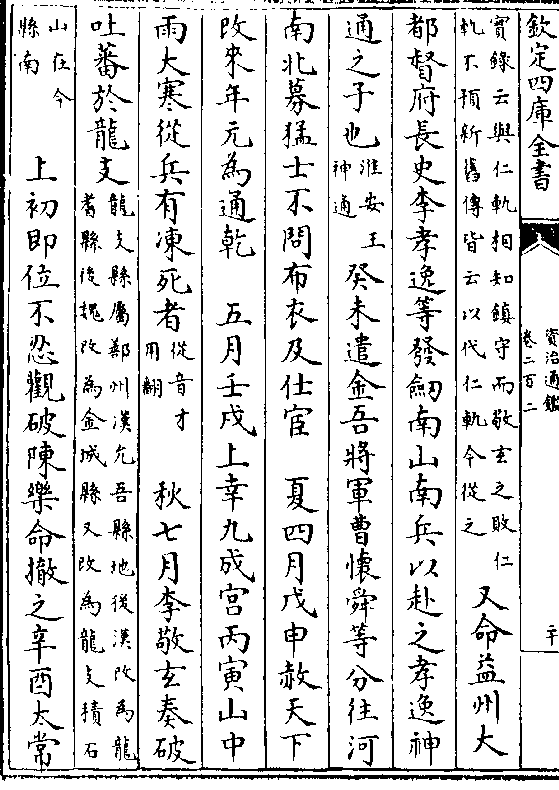 欽定四庫全書
資治通鑑
卷二百二
二十
實錄云與仁軌相知鎮守而敬玄之敗仁
軌不預新舊傳皆云以代仁軌今從之
又命益州大
都督府長史李孝逸等發劒南山南兵以赴之孝逸神
通之子也
淮安王
神通
癸未遣金吾將軍曹懷舜等分往河
南北募猛士不問布衣及仕宦 夏四月戊申赦天下
改來年元為通乾 五月壬戌上幸九成宮丙寅山中
雨大寒從兵有凍死者
從音才
用翻
秋七月李敬玄奏破
吐蕃於龍支
龍支縣屬鄯州漢允吾縣地後漢改為龍
耆縣後魏改為金城縣又改為龍支積石
山在今
縣南
上初即位不忍觀破陳樂命撤之辛酉太常